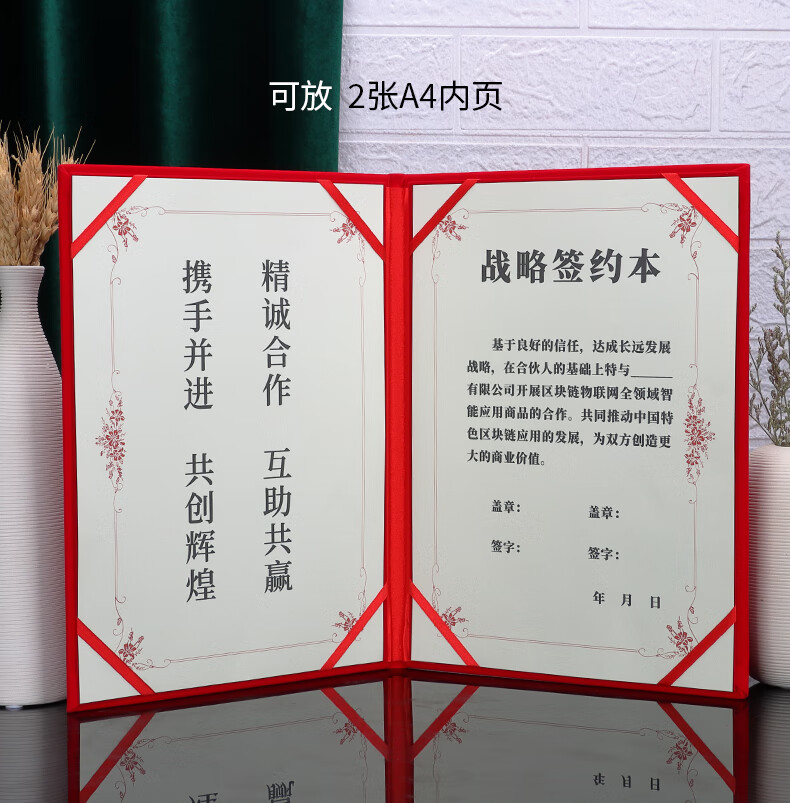 可放 2张A4内页
精诚合作 互助共赢
携手并进 共创辉煌
战略签约本
基于良好的信任，达成长远发展
战略，在合伙人的基础上特与______
有限公司开展区块链物联网全领域智
能应用商品的合作。共同推动中国特
色区块链应用的发展，为双方创造更
大的商业价值。
盖章： 盖章：
签字： 签字：
年 月 日